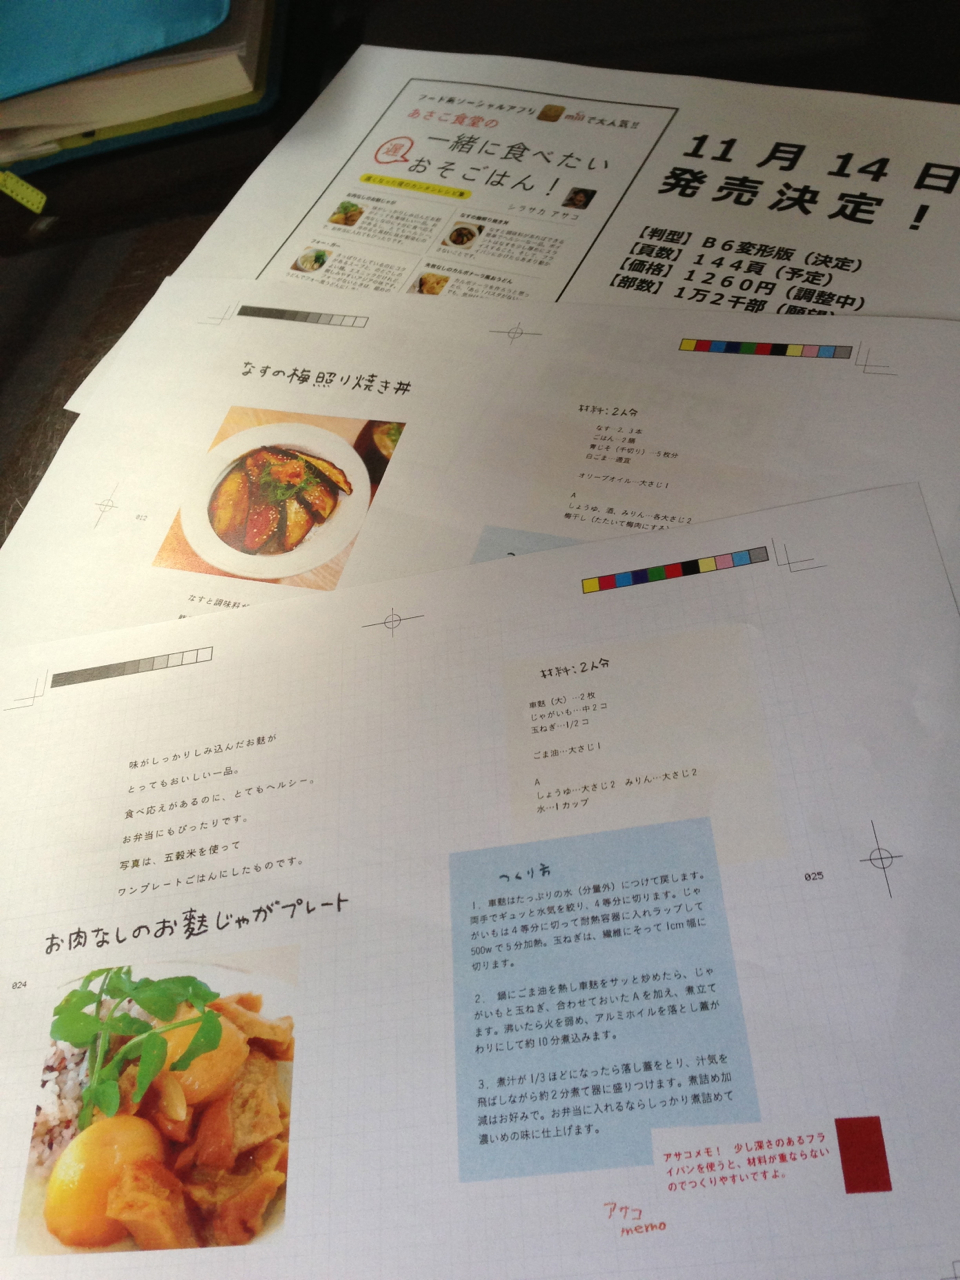 フード系ソーシャルアプリ miilで大人気!!
あさこ食堂の
遅
一緒に食べたい
おそごはん!
シラサカ アサコ
なすの梅照り焼き丼
フォー風
11月14日
発売決定!
【判型】B6変形版(決定)
【頁数】144頁(予定)
【価格】1260円(調整中)
【部数】1万2千部(願望)
なすの梅照り焼き丼
012
なすと調味料が
材料:2人分
なす…2、3本
ごはん…2膳
青じそ(千切り)…5枚分
白ごま…適宜
オリーブオイル…大さじ1
A
しょうゆ、酒、みりん…各大さじ2
梅干し(たたいて梅肉にする)
味がしっかりしみ込んだお麩が
とってもおいしい一品。
食べ応えがあるのに、とてもヘルシー。
お弁当にもぴったりです。
写真は、五穀米を使って
ワンプレートごはんにしたものです。
お肉なしのお麩じゃがプレート
024
材料:2人分
車麩(大)…2枚
じゃがいも…中2コ
玉ねぎ…1/2コ
ごま油…大さじ1
A
しょうゆ…大さじ2 みりん…大さじ2
水…1カップ
つくり方
1. 車麩はたっぷりの水(分量外)につけて戻します。
両手でギュッと水気を絞り、4等分に切ります。じゃ
がいもは4等分に切って耐熱容器に入れラップして
500wで5分加熱。玉ねぎは、繊維にそって1cm幅に
切ります。
2. 鍋にごま油を熱し車麩をサッと炒めたら、じゃ
がいもと玉ねぎ、合わせておいたAを加え、煮立て
ます。沸いたら火を弱め、アルミホイルを落とし蓋が
わりにして約10分煮込みます。
3. 煮汁が1/3ほどになったら落し蓋をとり、汁気を
飛ばしながら約2分煮て器に盛りつけます。煮詰め加
減はお好みで。お弁当に入れるならしっかり煮詰めて
濃いめの味に仕上げます。
025
アサコメモ! 少し深さのあるフラ
イパンを使うと、材料が重ならない
のでつくりやすいですよ。
アサコ
memo